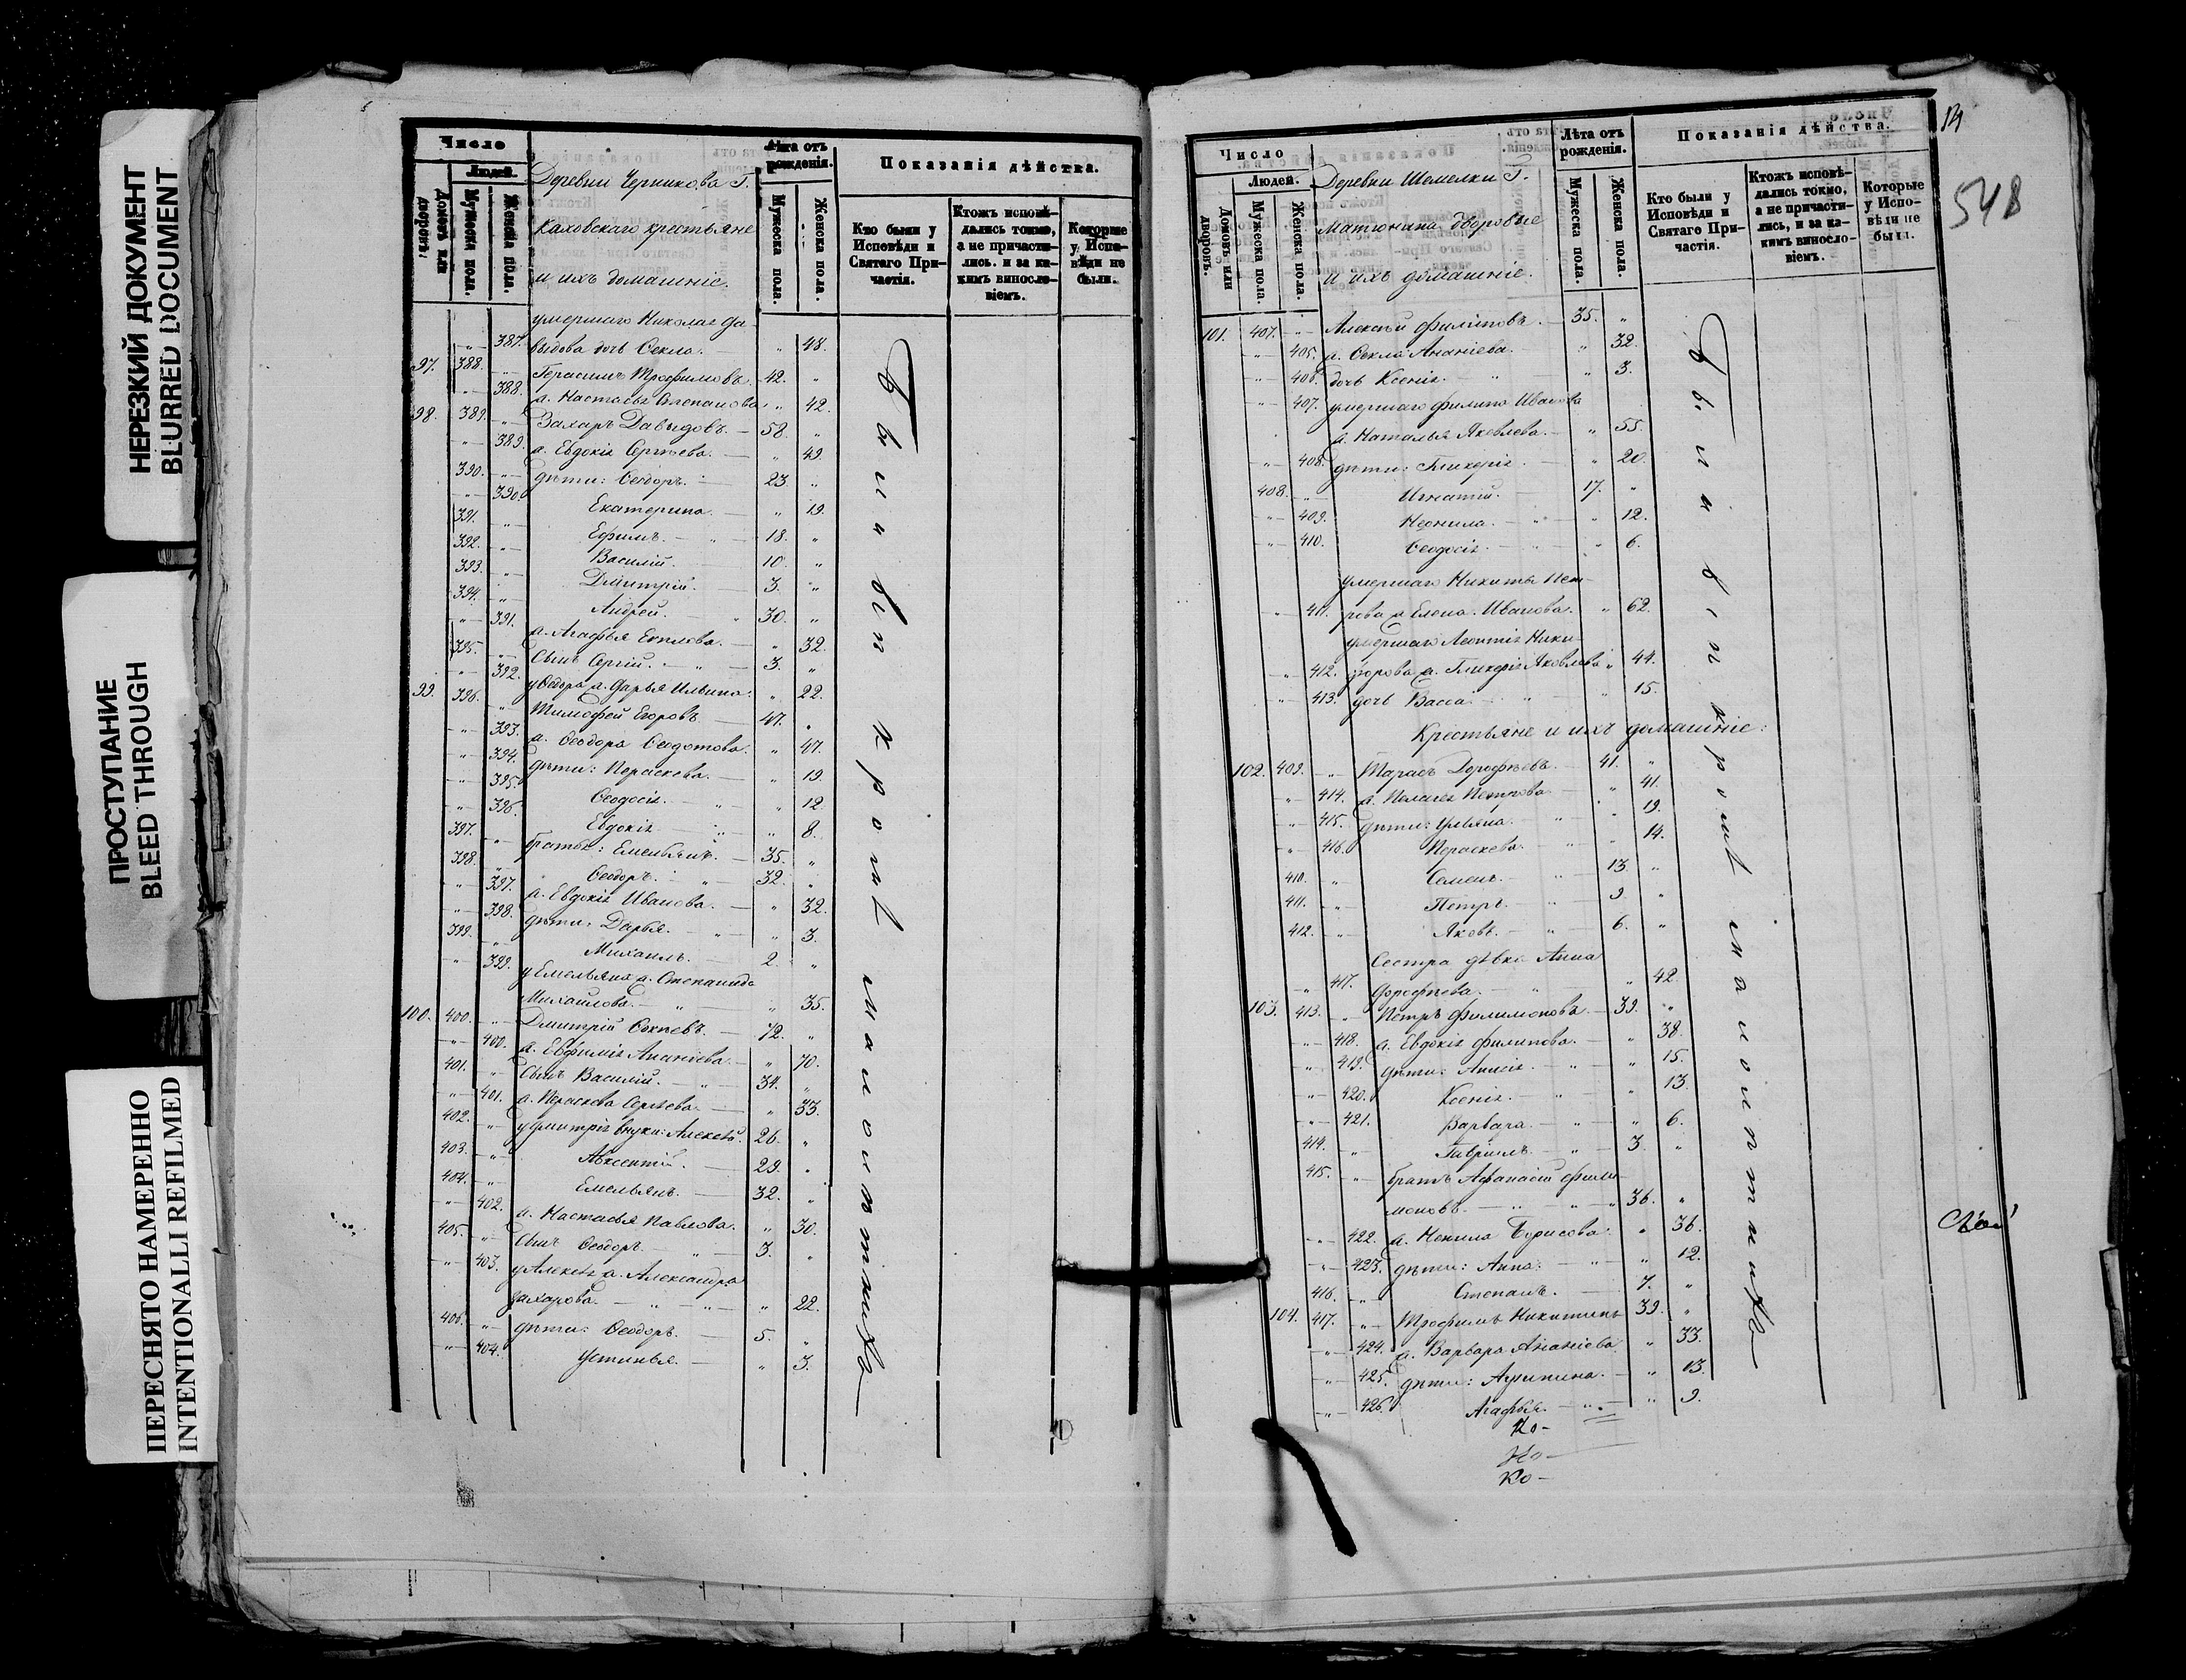 НЕРЕЗКИЙ ДОКУМЕНТ
BLURRED DOCUMENT
ПРОСТУПАНИЕ
BLEED THROUGH
ПЕРЕСНЯТО НАМЕРЕННО
INTENTIONALLI REFILMED
Число
Людей.
Домовъ или дворовъ.
Мужеска пола.
Женска пола.
Деревни Черникова Г.
Каховскаго крестьяне
и ихъ домашніе.
Лѣта отъ рожденія.
Мужеска пола.
Женска пола.
Показанія дѣйства.
Кто были у Исповѣди и Святаго Причастія.
Ктожъ исповѣдались токмо, а не причастились. и за какимъ винословіемъ.
Которые у Исповѣди не были.
умершаго Николая Да-
" 387. выдова дочь Ѳекла. " 48.
97. 388. " Герасимъ Трофимовъ. 42. "
" 388. ж. Настасья Степанова. " 42.
98. 389. " Захаръ Давыдовъ. 58. "
" 389. ж. Евдокія Сергѣева. " 49.
390. " дѣти: Ѳеодоръ. 23. "
" 390. Екатерина. " 19.
391. " Ефимъ. 18. "
392. " Василій. 10. "
393. " Дмитрій. 3. "
394. " Андрей. 30. "
" 391. ж. Агафья " 32.
395. " Сынъ Сергій. 3. "
" 392. у Ѳедора ж. Дарья Ильина. " 22.
99. 396. " Тимофей Егоровъ 47. "
" 393. ж. Ѳеодора Ѳедотова. " 47.
" 394. дѣти: Параскева. " 19.
" 395. Ѳеодосія. " 12.
" 396. Евдокія. " 8.
397. " братья: Емельянъ. 35. "
398. " Ѳеодоръ. 32. "
" 397. ж. Евдокія Иванова. " 32.
" 398. дѣти: Дарья. " 3.
399. " Михаилъ. 2. "
" 399. у Емельяна ж. Степанида
Михайлова. " 35.
100. 400. " Дмитрій 72. "
" 400. ж. Евфимія Ананіева. " 70.
401. " Сынъ Василій. 34. "
" 401. ж. Параскева Сергѣева. " 33.
402. " у Дмитрія внуки: Алексѣй. 26. "
403. " Авксентій. 29. "
404. " Емельянъ. 32. "
" 402. ж. Настасья Павлова. " 30.
405. " Сынъ Ѳеодоръ. 3. "
" 403. у Алексѣя ж. Александра
Захарова. " 22.
406. " дѣти: Ѳеодоръ. 5. "
" 404. Устинья. " 3.
Были вси кромѣ малолѣтнихъ
Число
Людей.
Домовъ или дворовъ.
Мужеска пола.
Женска пола.
Деревни Шемелки Г.
Матюнина дворовые
и ихъ домашніе.
Лѣта отъ рожденія.
Мужеска пола.
Женска пола.
Показанія дѣйства.
Кто были у Исповѣди и Святаго Причастія.
Ктожъ исповѣдались токмо, а не причастились, и за какимъ винословіемъ.
Которые у Исповѣди не были.
548
101. 407. " Алексѣй Филиповъ. 35. "
" 405. ж. Ѳекла Ананіева. " 32.
" 406. дочь Ксенія. " 3.
" 407. умершаго Филипа Иванова
ж. Наталья Яковлева. " 55.
" 408. дѣти: Гликерія. " 20.
408. " Игнатій. 17. "
" 409. Неонила. " 12.
" 410. Ѳеодосія. " 6.
умершаго Никиты Пет-
" 411. рова ж. Елена Иванова. " 62.
умершаго Леонтія Ники-
" 412. форова ж. Гликерія Яковлева " 44.
" 413. дочь Васса. " 15.
Крестьяне и ихъ домашніе:
102. 409. " Тарасъ Дорофѣевъ. 41. "
" 414. ж. Пелагея Петрова " 41.
" 415. дѣти: Ульяна. " 19.
" 416. Параскева. " 14.
410. " Семенъ. 13. "
411. " Петръ. 9. "
412. " Яковъ. 6. "
Сестра дѣвка Анна
" 417. Дорофѣева. " 42.
103. 413. " Петръ Филимоновъ. 39. "
" 418. ж. Евдокія Филипова. " 38.
" 419. дѣти: Анисія. " 15.
" 420. Ксенія. " 13.
" 421. Варвара. " 6.
414. " Гавріилъ. 3. "
415. " братъ Афанасій Фили-
моновъ. 36. "
" 422. ж. Ненила Борисова. " 36.
" 423. дѣти: Анна. " 12.
416. " Степанъ. 7. "
104. 417. " Трофимъ Никитинъ 39. "
" 424. ж. Варвара Ананіева " 33.
" 425. дѣти: Агрипина. " 13.
" 426. Агафья. " 9.
Были вси кромѣ малолѣтнихъ
Ко-